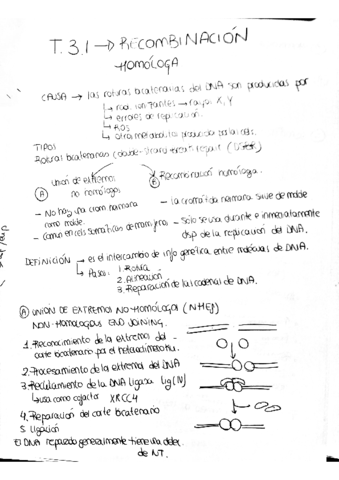 T.3.1 → RECOMBINACIÓN
HOMÓLOGA
CAUSA → las roturas bicatenarias del DNA son producidas por
↳ rad. ionizantes → rayos X, Y
↳ errores de replicación.
↳ ROS
↳ otros metabolitos producidos por las cels.
TIPOS
Roturas bicatenarias (double-strand break repair)
A unión de extremos no homólogos
B Recombinación homóloga.
- No hay una crom hermana como molde.
- Común en cels somáticas de mamíferos
- la cromátida hermana sirve de molde
- Sólo se usa durante e inmediatamente dsp de la replicación del DNA.
DEFINICIÓN → es el intercambio de info genética entre moléculas de DNA.
↳ Pasos: 1. ROTURA
2. Alineación
3. Reparación de las cadenas de DNA.
A UNIÓN DE EXTREMOS NO-HOMÓLOGOS (NHEJ)
NON-HOMOLOGOUS END JOINING.
1. Reconocimiento de los extremos del
corte bicatenario por el heterodímero Ku.
2. Procesamiento de los extremos del DNA
3. Reclutamiento de la DNA ligasa Lig IV
↳ usa como cofactor XRCC4
4. Reparación del corte bicatenario
5. Ligación
El DNA reparado generalmente tiene una delec.
de NT.